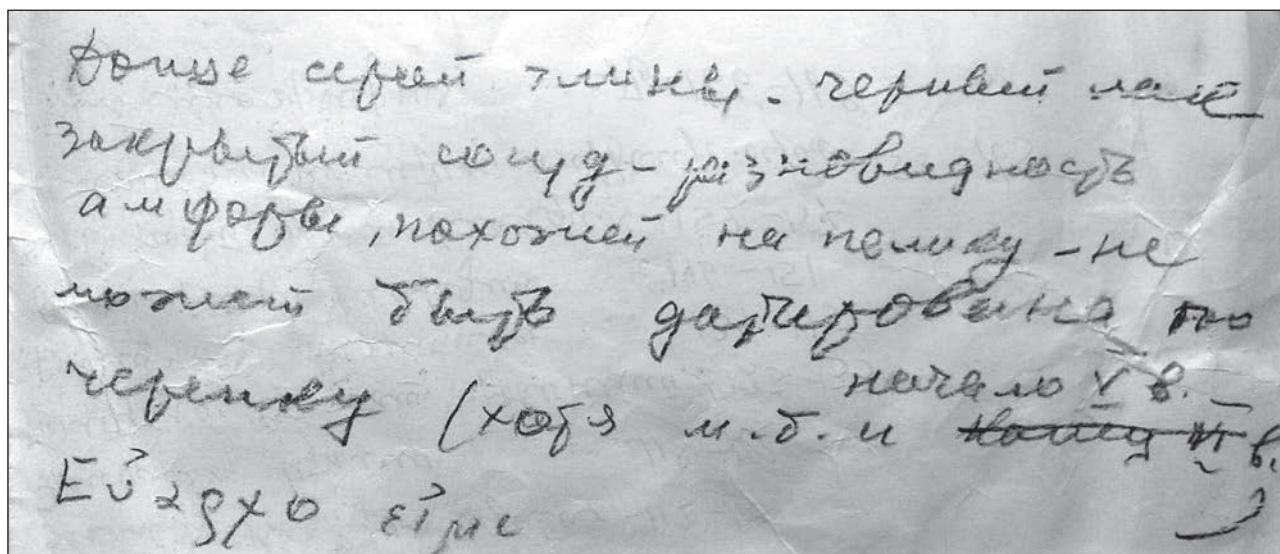 Донце серой глины. черный лак
закрытый сосуд - разновидность
амфоры, похожей на пелику - не
может быть датирована по
черепку (хотя м.б. и начало V в.
Εὐάρχο εἰμι